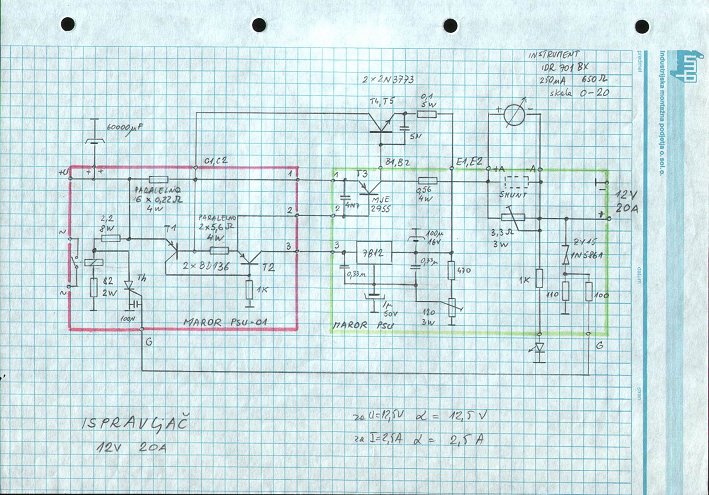 INSTRUMENT
IDR 901 BX
250mA 650Ω
skala 0-20
imp
industrijska montažna podjetja o. sol. o.
2×2N3773
T4,T5
0,1
5W
5N
60000µF
+U
+
+
C1,C2
B1,B2
E1,E2
+
-
+A
-A
SHUNT
1
1
T3
MJE
2955
0,56
4W
PARALELNO
6 x 0,22Ω
4W
2
2
4N7
PARALELNO
2x5,6Ω
4W
2,2
8W
T1
T2
2×BD136
3
3
7812
100µ
16V
0,33µ
1µ
50V
470
120
3W
3,3Ω
3W
12V
20A
+
ZY15
1N5861
1K
1K
110
100
~
~
82
2W
Th
100N
G
G
MAROR PSU-01
MAROR PSU
ISPRAVLJAČ
12V 20A
za U=12,5V α = 12,5 V
za I=2,5A α = 2,5 A